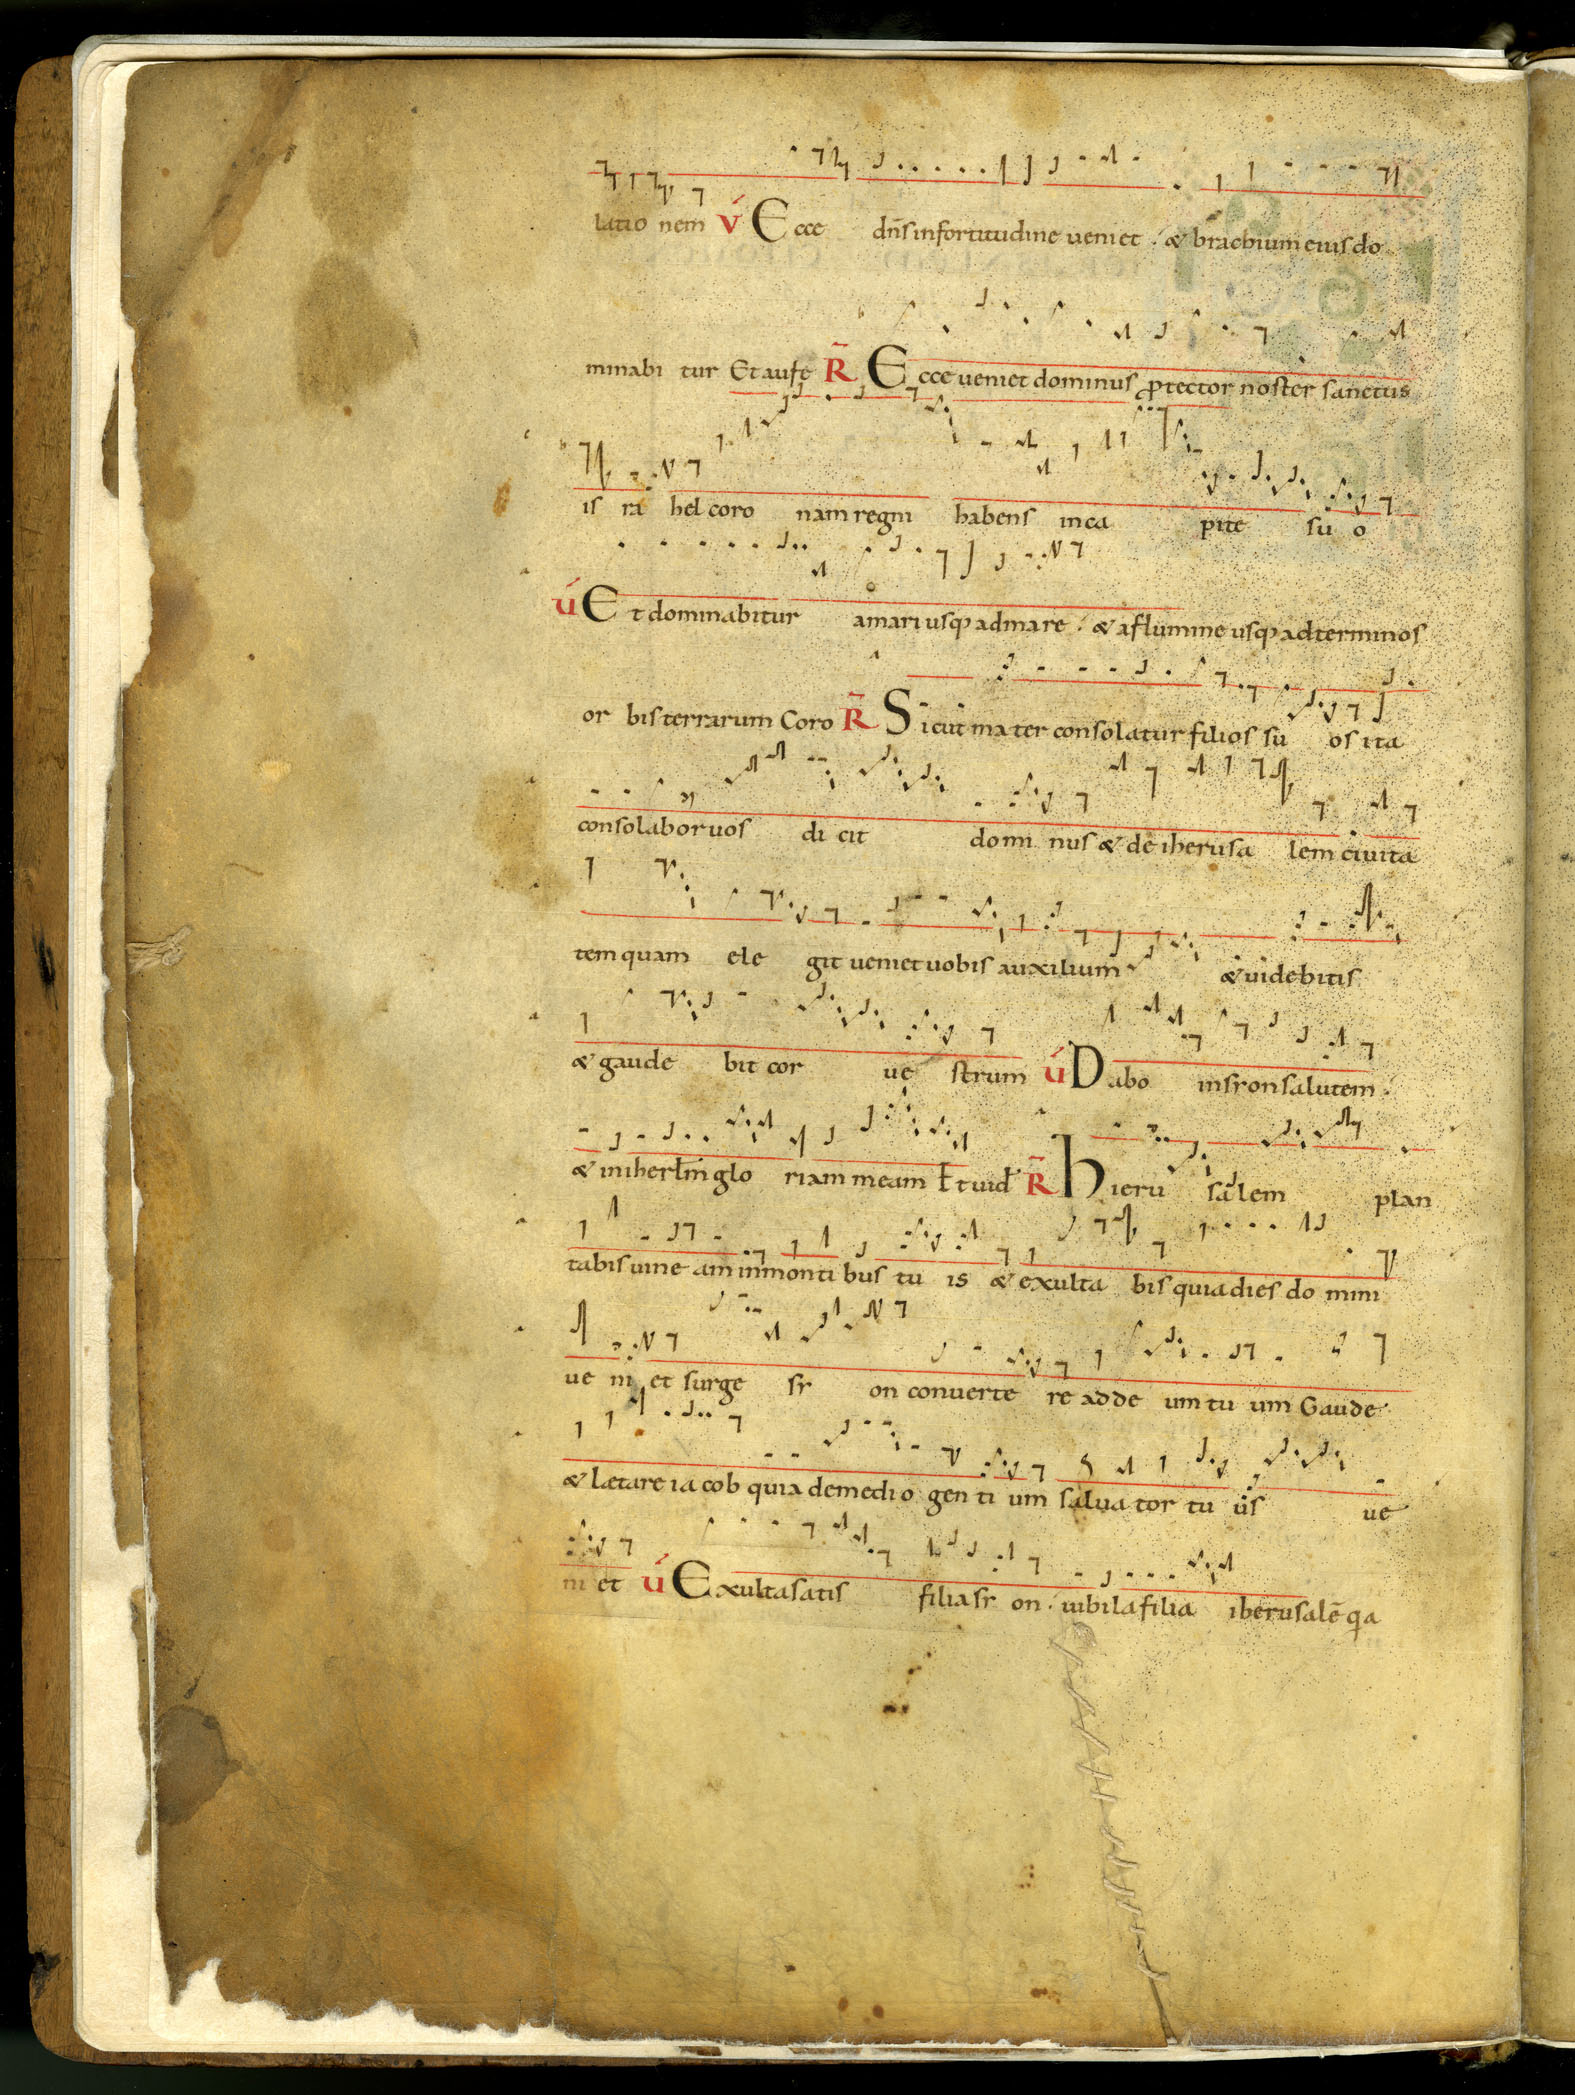 latio nem V́ Ecce dn̄s infortitudine ueniet . & brachium eius do
minabi tur Et aufe R̄ Ecce ueniet dominus ꝓtector noster sanctus
is ra hel coro nam regni habens inca pite su o
V́ Et dominabitur amari usqꝫ admare . & aflumine usqꝫ adterminos
or bis terrarum Coro R̄ Sicut mater consolatur filios su os ita
consolabor uos di cit domi nus & de iherusa lem ciuita
tem quam ele git ueniet uobis auxilium & uidebitis
& gaude bit cor ue strum V́ Dabo insyon salutem .
& iniherl̄m glo riam meam Et uid R̄ Hieru salem plan
tabis uine am inmonti bus tu is & exulta bis quia dies do mini
ue ni et surge sy on conuerte re adde um tu um Gaude
& laetare ia cob quia demedio gen ti um salua tor tu us ue
ni et V́ Exulta satis filia sy on . iubila filia iherusalē qia